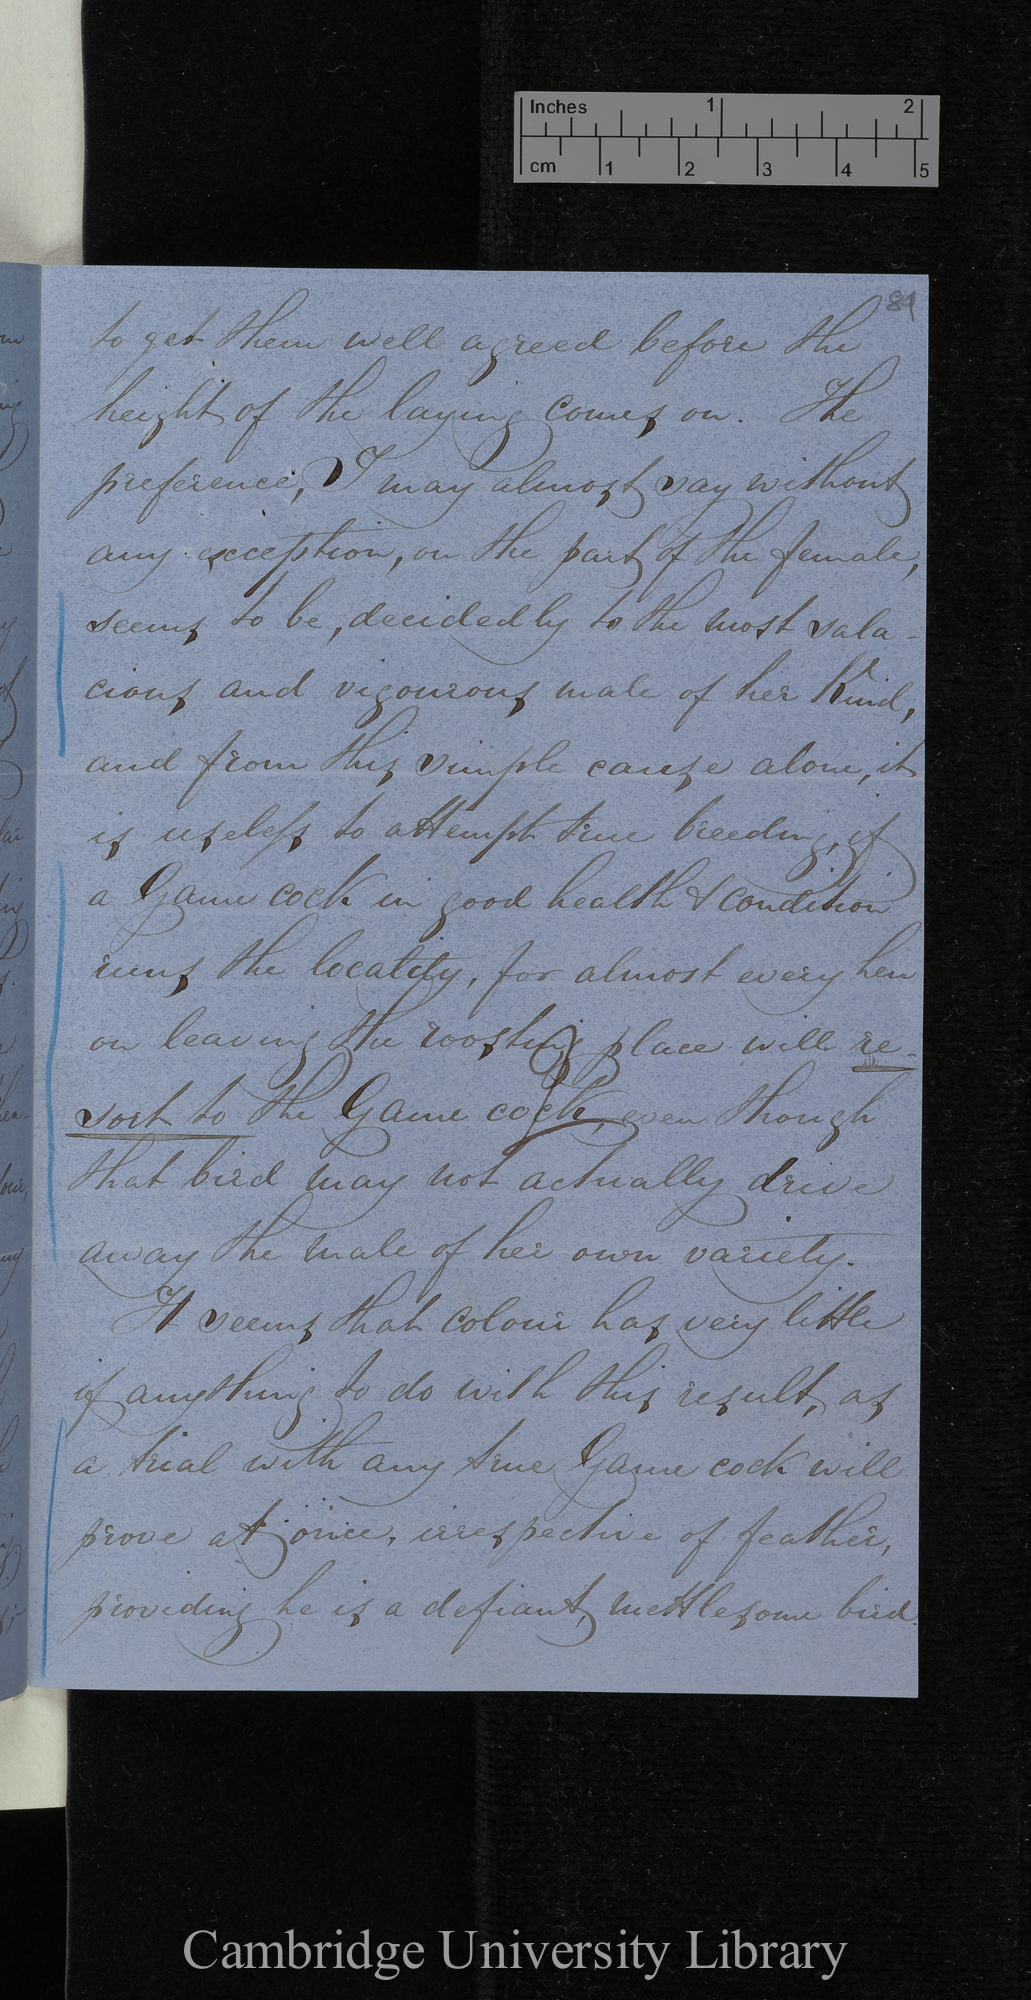 Inches 1 2
cm 1 2 3 4 5
89
to get them well agreed before the
height of the laying comes on. The
preference, I may almost say without
any exception, on the part of the female,
seems to be, decidedly to the most sala-
cious and vigourous male of her Kind,
and from this simple cause alone, it
is useless to attempt true breeding, if
a Game cock in good health & condition
runs the locality, for almost every hen
on leaving the roosting place will re-
sort to the Game cock, even though
that bird may not actually drive
away the male of her own variety.
It seems that colour has very little
if anything to do with this result, as
a trial with any true Game cock will
prove at once, irrespective of feather,
providing he is a defiant, mettlesome bird.
Cambridge University Library